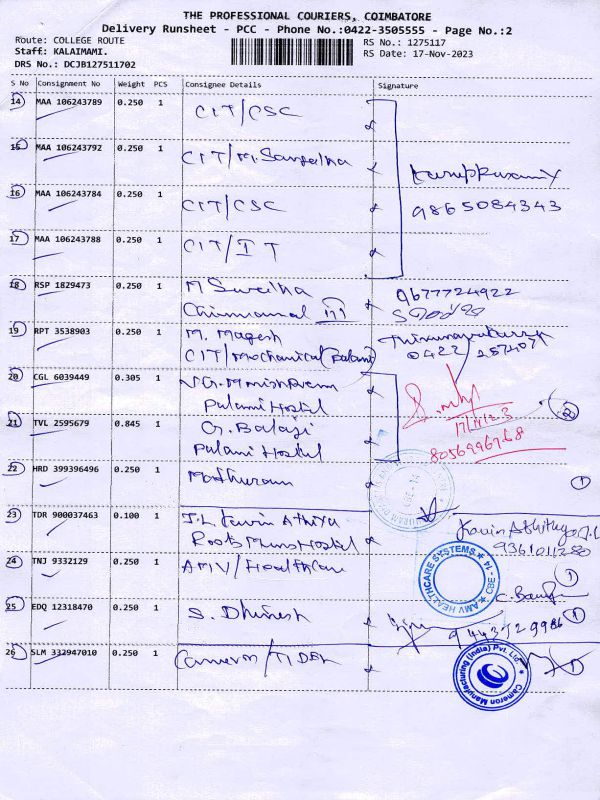 THE PROFESSIONAL COURIERS, COIMBATORE
Delivery Runsheet - PCC - Phone No.:0422-3505555 - Page No.:2
Route: COLLEGE ROUTE
RS No.: 1275117
Staff: KALAIMAMI.
RS Date: 17-Nov-2023
DRS No.: DCJB127511702
S No Consignment No Weight PCS Consignee Details Signature
14 MAA 106243789 0.250 1 CIT/CSC
15 MAA 106243792 0.250 1 CIT/M.
16 MAA 106243784 0.250 1 CIT/CSC
9865084343
17 MAA 106243788 0.250 1 CIT/IT
18 RSP 1829473 0.250 1 M
9677724922
19 RPT 3538903 0.250 1 M. Magesh
CIT/Mechanical
0422
20 CGL 6039449 0.305 1
Palami Hostel
21 TVL 2595679 0.845 1 G. Balaji
Palami Hostel
8056996768
2
22 HRD 399396496 0.250 1 Mathuram
1
23 TDR 900037463 0.100 1 J.L. Kavin Athiya
Hostel
9361011280
24 TNJ 9332129 0.250 1 AMV/Healthcare
AMV HEALTHCARE SYSTEMS
CBE - 14
1
25 EDQ 12318470 0.250 1 S. Dhinesh
1
26 SLM 332947010 0.250 1 Cameron/TIDEL
Cameron Manufacturing (India) Pvt. Ltd.